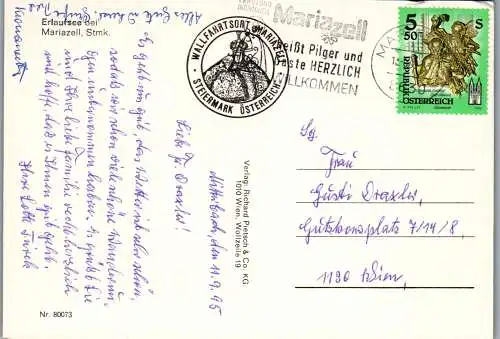 Erlaufsee bei
Mariazell, Stmk.
Alles Gute
Mitterbach, den 11.9.95
Liebe Fr. Draxler!
Es geht uns gut, das Wetter ist sehr schön,
sodass wir schon viele schöne Wanderun-
gen unternommen haben. Es grüßt Sie
und Ihre liebe Familie recht herzlich
und hofft, daß es Ihnen gut geht.
Ihre Lotte
Verlag: Richard Pietsch & Co. KG.
1010 Wien, Wollzeile 19
Nr. 80073
WALLFAHRTSORT MARIAZELL
STEIERMARK ÖSTERREICH
Mariazell
heißt Pilger und
Gäste HERZLICH
WILLKOMMEN
5 50 S
REPUBLIK
ÖSTERREICH
Sg.
Frau
Gusti Draxler
Gatterburgplatz 7/14/8,
1190 Wien